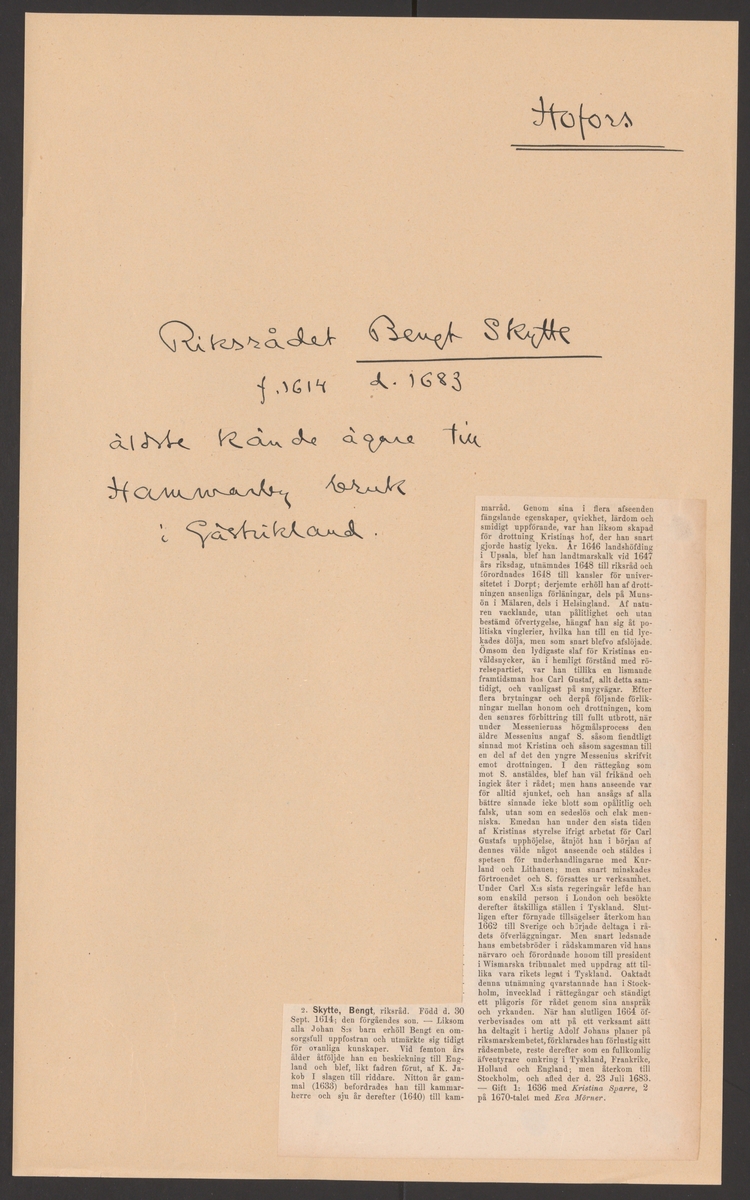 Hofors
Riksrådet Bengt Skytte
f. 1614 d. 1683
äldste kände ägare till
Hammarby bruk
i Gästrikland.
2. Skytte, Bengt, riksråd. Född d. 30
Sept. 1614; den förgåendes son. — Liksom
alla Johan S:s barn erhöll Bengt en om-
sorgsfull uppfostran och utmärkte sig tidigt
för ovanliga kunskaper. Vid femton års
ålder åtföljde han en beskickning till Eng-
land och blef, likt fadren förut, af K. Ja-
kob I slagen till riddare. Nitton år gam-
mal (1633) befordrades han till kammar-
herre och sju år derefter (1640) till kam-
marråd. Genom sina i flera afseenden
fängslande egenskaper, qvickhet, lärdom och
smidigt uppförande, var han liksom skapad
för drottning Kristinas hof, der han snart
gjorde hastig lycka. År 1646 landshöfding
i Upsala, blef han landtmarskalk vid 1647
års riksdag, utnämndes 1648 till riksråd och
förordnades 1648 till kansler för univer-
sitetet i Dorpt; derjemte erhöll han af drott-
ningen ansenliga förläningar, dels på Muns-
ön i Mälaren, dels i Helsingland. Af natu-
ren vacklande, utan pålitlighet och utan
bestämd öfvertygelse, hängaf han sig åt po-
litiska vinglerier, hvilka han till en tid lyc-
kades dölja, men som snart blefvo afslöjade.
Ömsom den lydigaste slaf för Kristinas en-
våldsnycker, än i hemligt förstånd med rö-
relsepartiet, var han tillika en lismande
framtidsman hos Carl Gustaf, allt detta sam-
tidigt, och vanligast på smygvägar. Efter
flera brytningar och derpå följande förlik-
ningar mellan honom och drottningen, kom
den senares förbittring till fullt utbrott, när
under Messeniernas högmålsprocess den
äldre Messenius angaf S. såsom fiendtligt
sinnad mot Kristina och såsom sagesman till
en del af det den yngre Messenius skrifvit
emot drottningen. I den rättegång som
mot S. anstäldes, blef han väl frikänd och
ingick åter i rådet; men hans anseende var
för alltid sjunket, och han ansågs af alla
bättre sinnade icke blott som opålitlig och
falsk, utan som en sedeslös och elak men-
niska. Emedan han under den sista tiden
af Kristinas styrelse ifrigt arbetat för Carl
Gustafs upphöjelse, åtnjöt han i början af
dennes välde något anseende och stäldes i
spetsen för underhandlingarne med Kur-
land och Lithauen; men snart minskades
förtroendet och S. försattes ur verksamhet.
Under Carl X:s sista regeringsår lefde han
som enskild person i London och besökte
derefter åtskilliga ställen i Tyskland. Slut-
ligen efter förnyade tillsägelser återkom han
1662 till Sverige och började deltaga i rå-
dets öfverläggningar. Men snart ledsnade
hans embetsbröder i rådskammaren vid hans
närvaro och förordnade honom till president
i Wismarska tribunalet med uppdrag att til-
lika vara rikets legat i Tyskland. Oaktadt
denna utnämning qvarstannade han i Stock-
holm, invecklad i rättegångar och ständigt
ett plågoris för rådet genom sina anspråk
och yrkanden. När han slutligen 1664 öf-
verbevisades om att på ett verksamt sätt
ha deltagit i hertig Adolf Johans planer på
riksmarskembetet, förklarades han förlustig sitt
rådsembete, reste derefter som en fullkomlig
äfventyrare omkring i Tyskland, Frankrike,
Holland och England; men återkom till
Stockholm, och afled der d. 23 Juli 1683.
— Gift 1: 1636 med Kristina Sparre, 2
på 1670-talet med Eva Mörner.